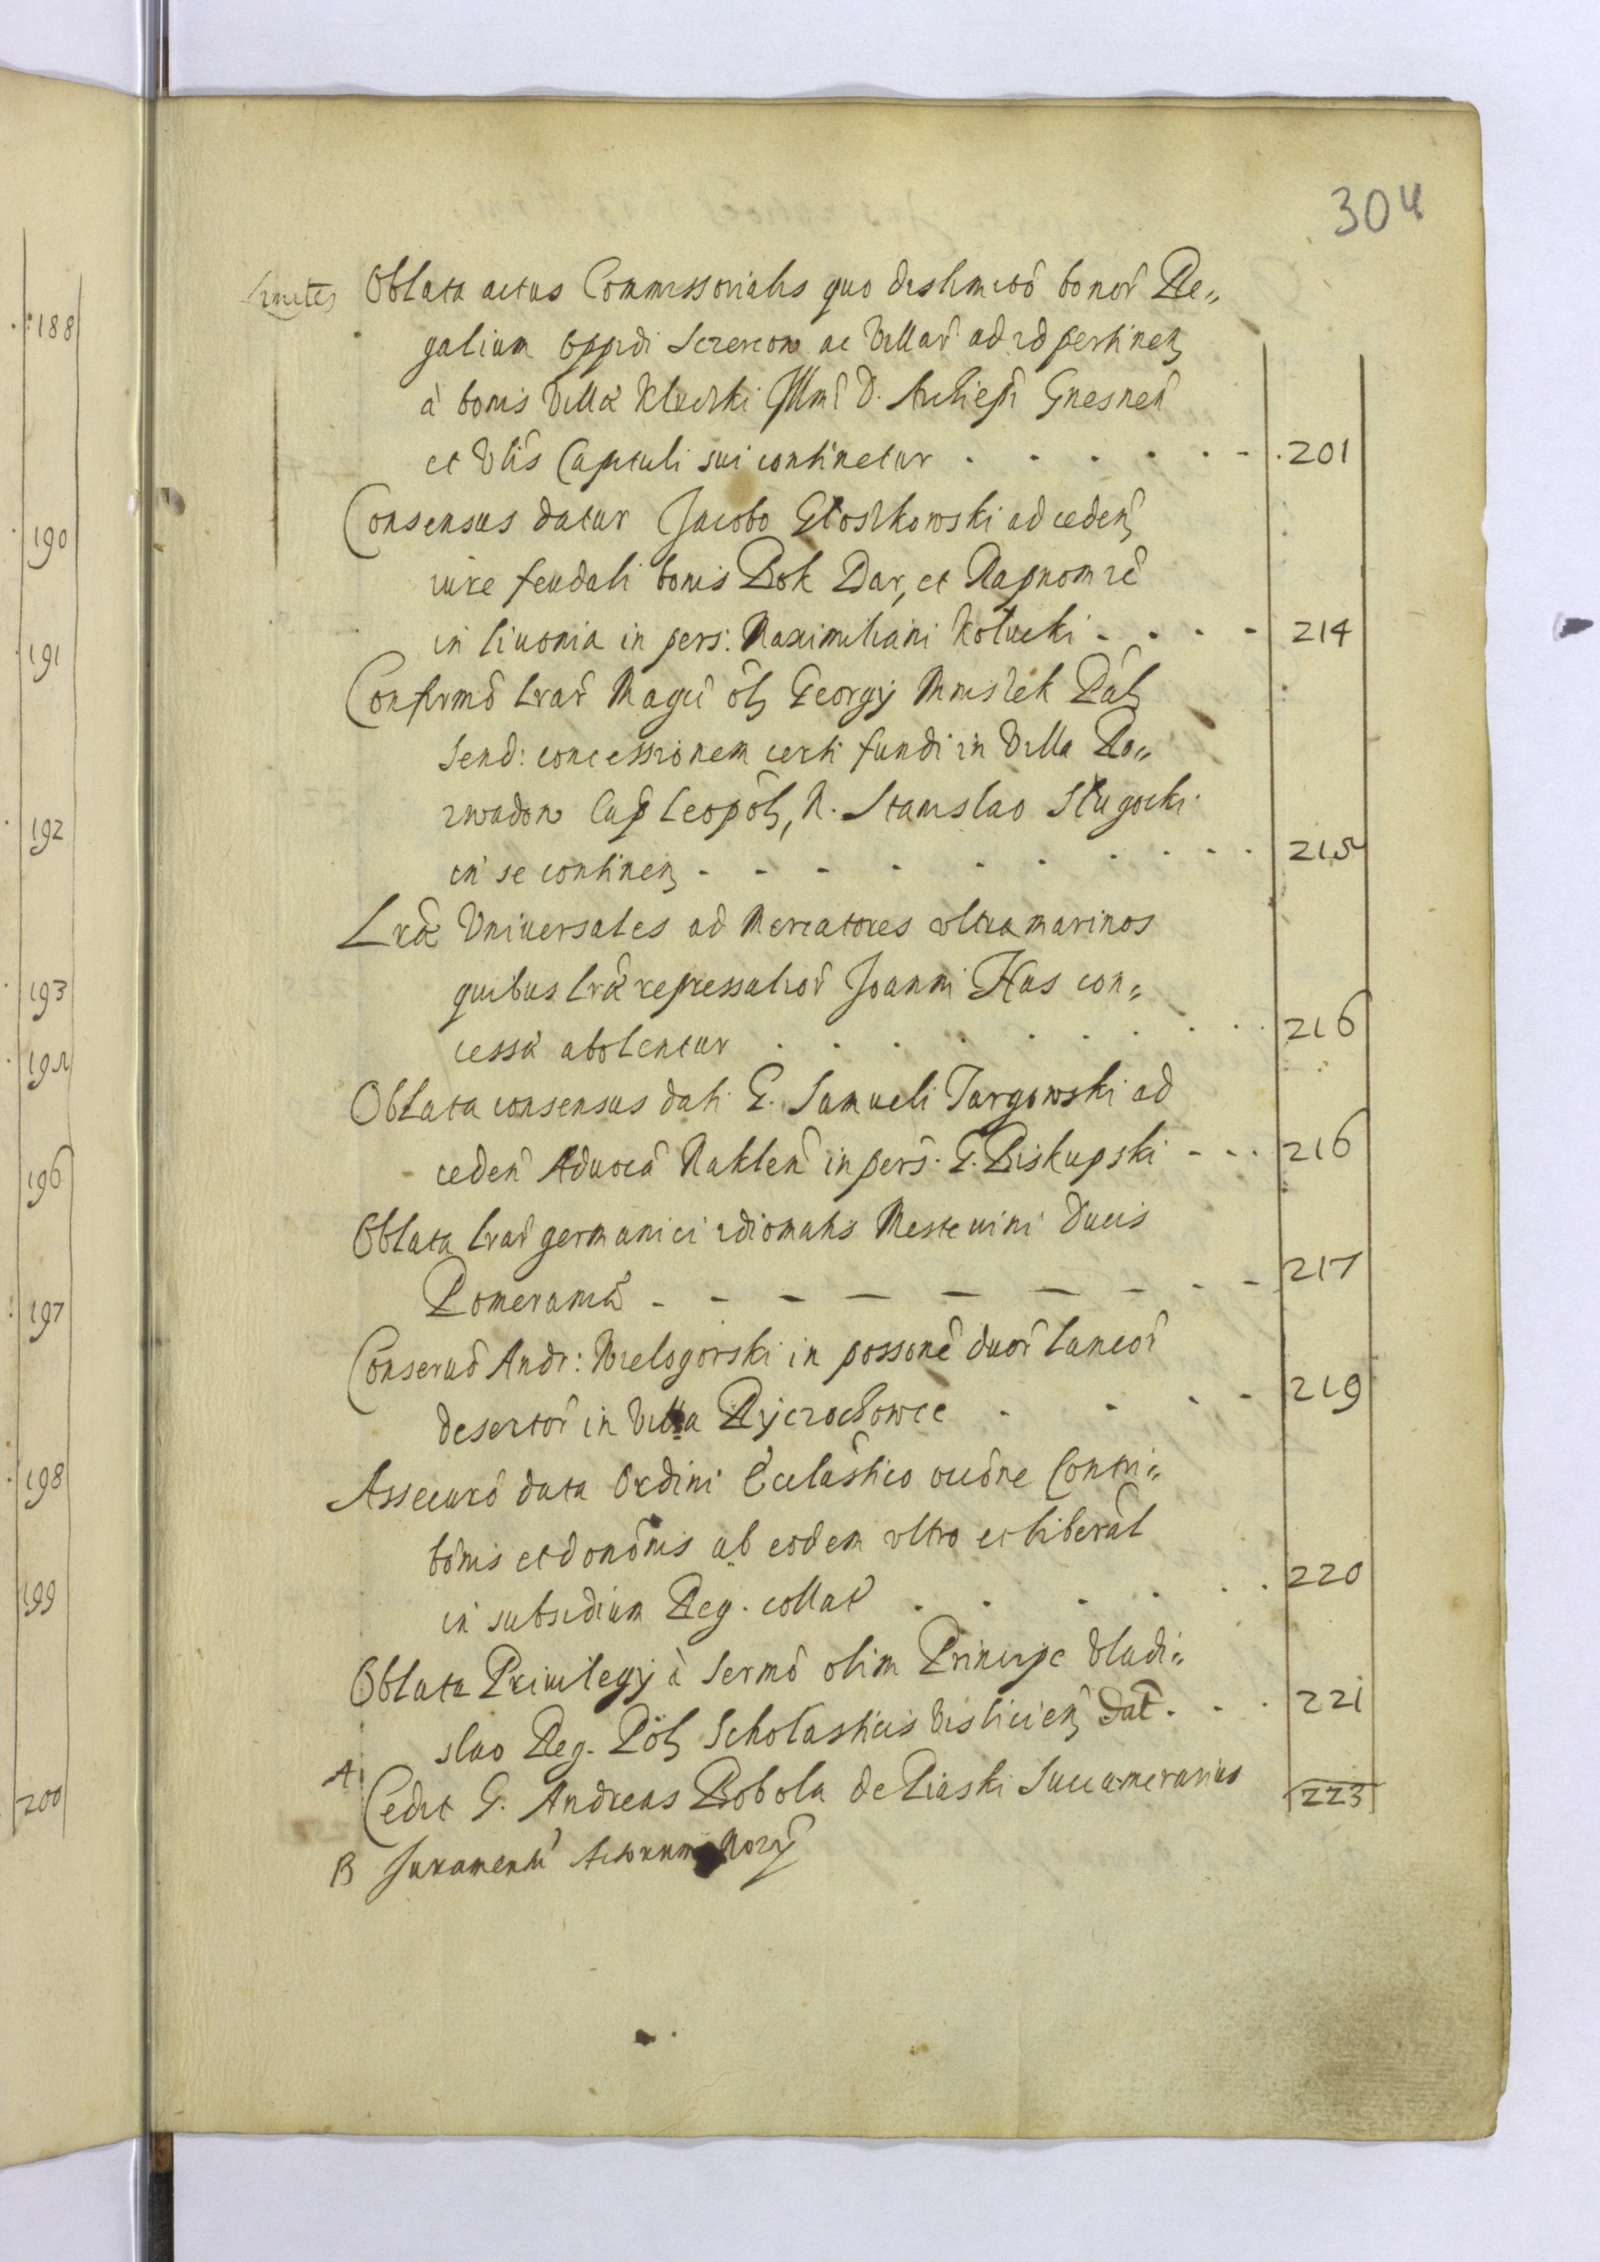 188
190
191
192
193
195
196
197
198
199
200
304
Limites Oblata actus Commissorialis quo dislimitõ bonor̃ Re„
galium oppidi Szczercow ac Villar̃ ad id pertineñ
à bonis Villæ Kluczki Illmi D. Archiepi Gnesneñ
et Vlis Capituli sui continetur . . . . . . 201
Consensus datur Jacobo Głoskowski ad cedeñ
iure feudali bonis Bok Dar, et
in Liuonia in pers: Maximiliani Kołucki . . . . 214
Confirmõ Lrar̃ Magci oĺ Georgij Mniszek Paĺ
Send: concessionem certi fundi in Villa Ro„
zwadow Cap Leopoĺ, N. Stanislao Sługocki
in se contineñ . . . . . . . . . 215
Lræ Vniuersales ad Mercatores vltramarinos
quibus Lræ repressalior̃ Joanni Has con„
cessæ abolentur . . . . . . . 216
Oblata consensus dati G. Samueli Targowski ad
cedeñ Aduocã Nakleñ in pers: G. Biskupski . . . 216
Oblata Lrar̃ germanici idiomatis Mesteuini Ducis
Pomeraniæ . . . . . . . . . 217
Conseruõ Andr: Wielogorski in possonẽ duor̃ laneor̃
desertor̃ in Villa Ryczochowce . . . . 219
Assecurõ data Ordini Ecclãstico ocĉõne Contri„
bõnis et donõnis ab eodem vltro et liberal̃
in subsidium Reg. collat̃ . . . . . . 220
Oblata Priuilegij à Sermõ olim Principe Vladi„
slao Reg. Poĺ Scholasticis Visliciens Dat̃ . . . 221
A Cedit G. Andreas Bobola de Piaski Succamerarius 223
B Juramentũ Actorum